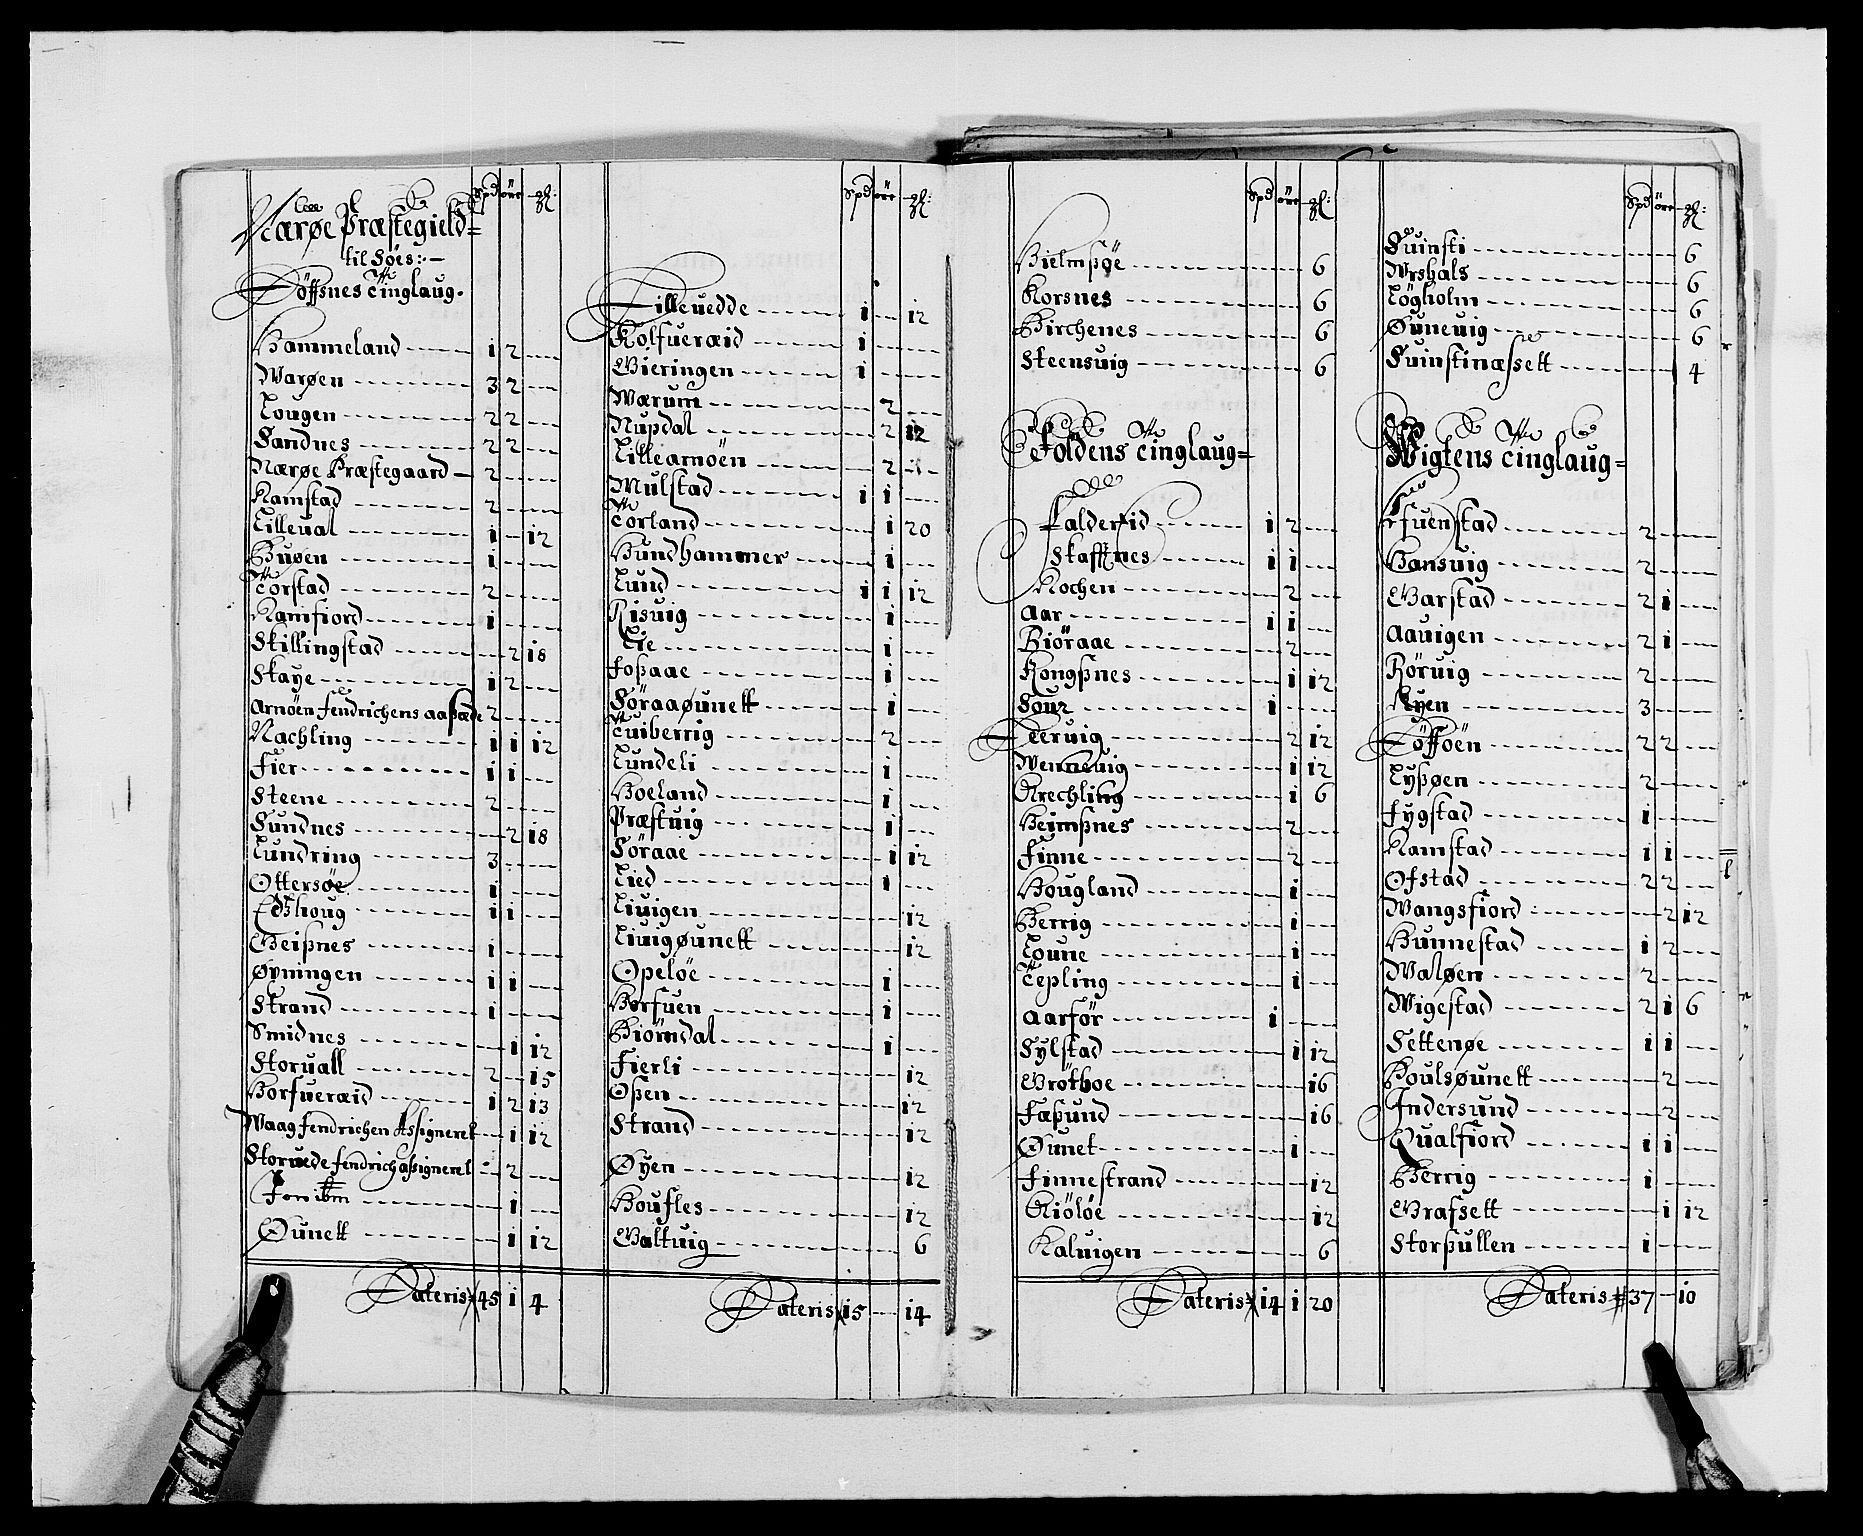 Spd öre
Nærøe Præstegield=
til Søes:-
Döffsnes Tinglaug.
Hammeland 1 2
Warøen 3 2
Lougen 2 2
Sandnes 2 2
Nærøe Præstegaard 2
Ramstad 2
Lilleual 1 12
Buøen 1
Torstad 2
Ramfiord 1
Skillingstad 2 18
Skaye 1 2
Arnöen fendrichens aasæde 2
Nachling 1 1 12
Fier 1 1
Steene 2
Sundnes 2 18
Lundring 3
Ottersøe 1
Edshoug 1 1
Geisnes 1
Øyningen 1 1
Strand 1
Smidnes 1 12
Storuall 2 15
Horfueræid 1 2 13
Waag fendrichen Assigneret 1 12
Storuede fendrich assigneret 2
Jon ibm 1
Ounett 1 12
Lateris 45 1 4
Spd öre
Lilleuedde 1 12
Kolfueræid 1
Gieringen 1
Wærum 2
Nupdal 2 12
Lillearnöen 2
Mulstad 1 1
Torland 1 20
Hundhammer 1
Lund 1 1 12
Risuig 1
Lie 1
Fossaae 1
Söraaøunett 1
Tuiberrig 2
Lundeli 1
Hoeland 1
Præstuig 1
Söraae 1 12
Lied 1
Liuigen 12
Liuigøunett 12
Opelöe 1
Horfuen 1
Biörndal 1
Fierli 12
Osen 12
Strand 12
Øyen 12
Houfles 12
Galtuig 6
Lateris 15 14
Spd öre
Hielmsöe 6
Korsnes 6
Birchenes 6
Steensuig 6
Földens Tinglaug=
Falderæid 1 2
Skaffnes 1 1
Kochen 2
Aar 1 1
Riöraae 2
Kongsnes 1 12
Sour 1
Leeruig 2 12
Wenneuig 1 12
Krechling 1 6
Heimsnes 2
Finne 2
Hougland 1
Berrig 1
Loune 1
Tepling 1
Aarför 1
Sylstad 1 12
Grotboe 16
Fæsund 16
Øunet 1
Finnestrand 12
Kiölöe 12
Kaluigen 6
Lateris 14 1 20
Spd öre
Suinsti 6
Wrshals 6
Lögholm 6
Øuneuig 6
Suinstinæssett 4
Wigtens Tinglaug=
Fuenstad 2
Hansuig 2
Garstad 2 1
Aauigen 2 1
Röruig 2
Ryen 3
Döffoën 2 2
Lysøen 2
Fygstad 1
Ramstad 1 1
Ofstad 2 2
Wangsfiord 2 12
Hunnestad 1 2
Waløen 2
Wigestad 2 1 6
Settenøe 1 1
Houlsøunett 2
Indersund 2
Qualfiord 1 1
Berrig 1
Grafsett 1 12
Storsullen 1
Lateris 37 10